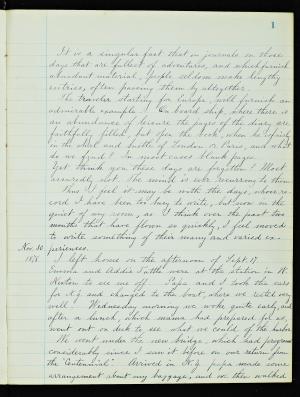 1
It is a singular fact that in journals on those
days that are fullest of adventures, and which furnish
abundant material, people seldom make lengthy
entries, often passing them by altogether.
The traveler starting for Europe, will furnish an
admirable example. On board ship, where there is
an abundance of leisure the pages of the diary are
faithfully filled, but open the book, when he is fairly
in the whirl and bustle of London or Paris, and what
do we find? In most cases blank pages.
Yet think you these days are forgotten? Most
assuredly not. The mind is ever recurring to them.
Thus I feel it may be with the days, whose re-
cord I have been too busy to write, but now in the
quiet of my room, as I think over the past two
months that have flown so quickly, I feel moved
to write something of their many and varied ex-
Nov. 30 periences.
1878 I left home on the afternoon of Sept. 17.
Emma and Addie Tuttle were at the station in W.
Newton to see me off. Papa and I took the cars
for and changed to the boat, where we rested very
well. Wednesday morning we were quite early, and
after a lunch, which mama had prepared for us,
went out on deck to see what we could of the harbor.
We went under the new bridge, which had progressed
considerably since I saw it before on our return from
the "Centennial". Arrived in N.Y. papa made some
arrangement about my baggage, and we then walked